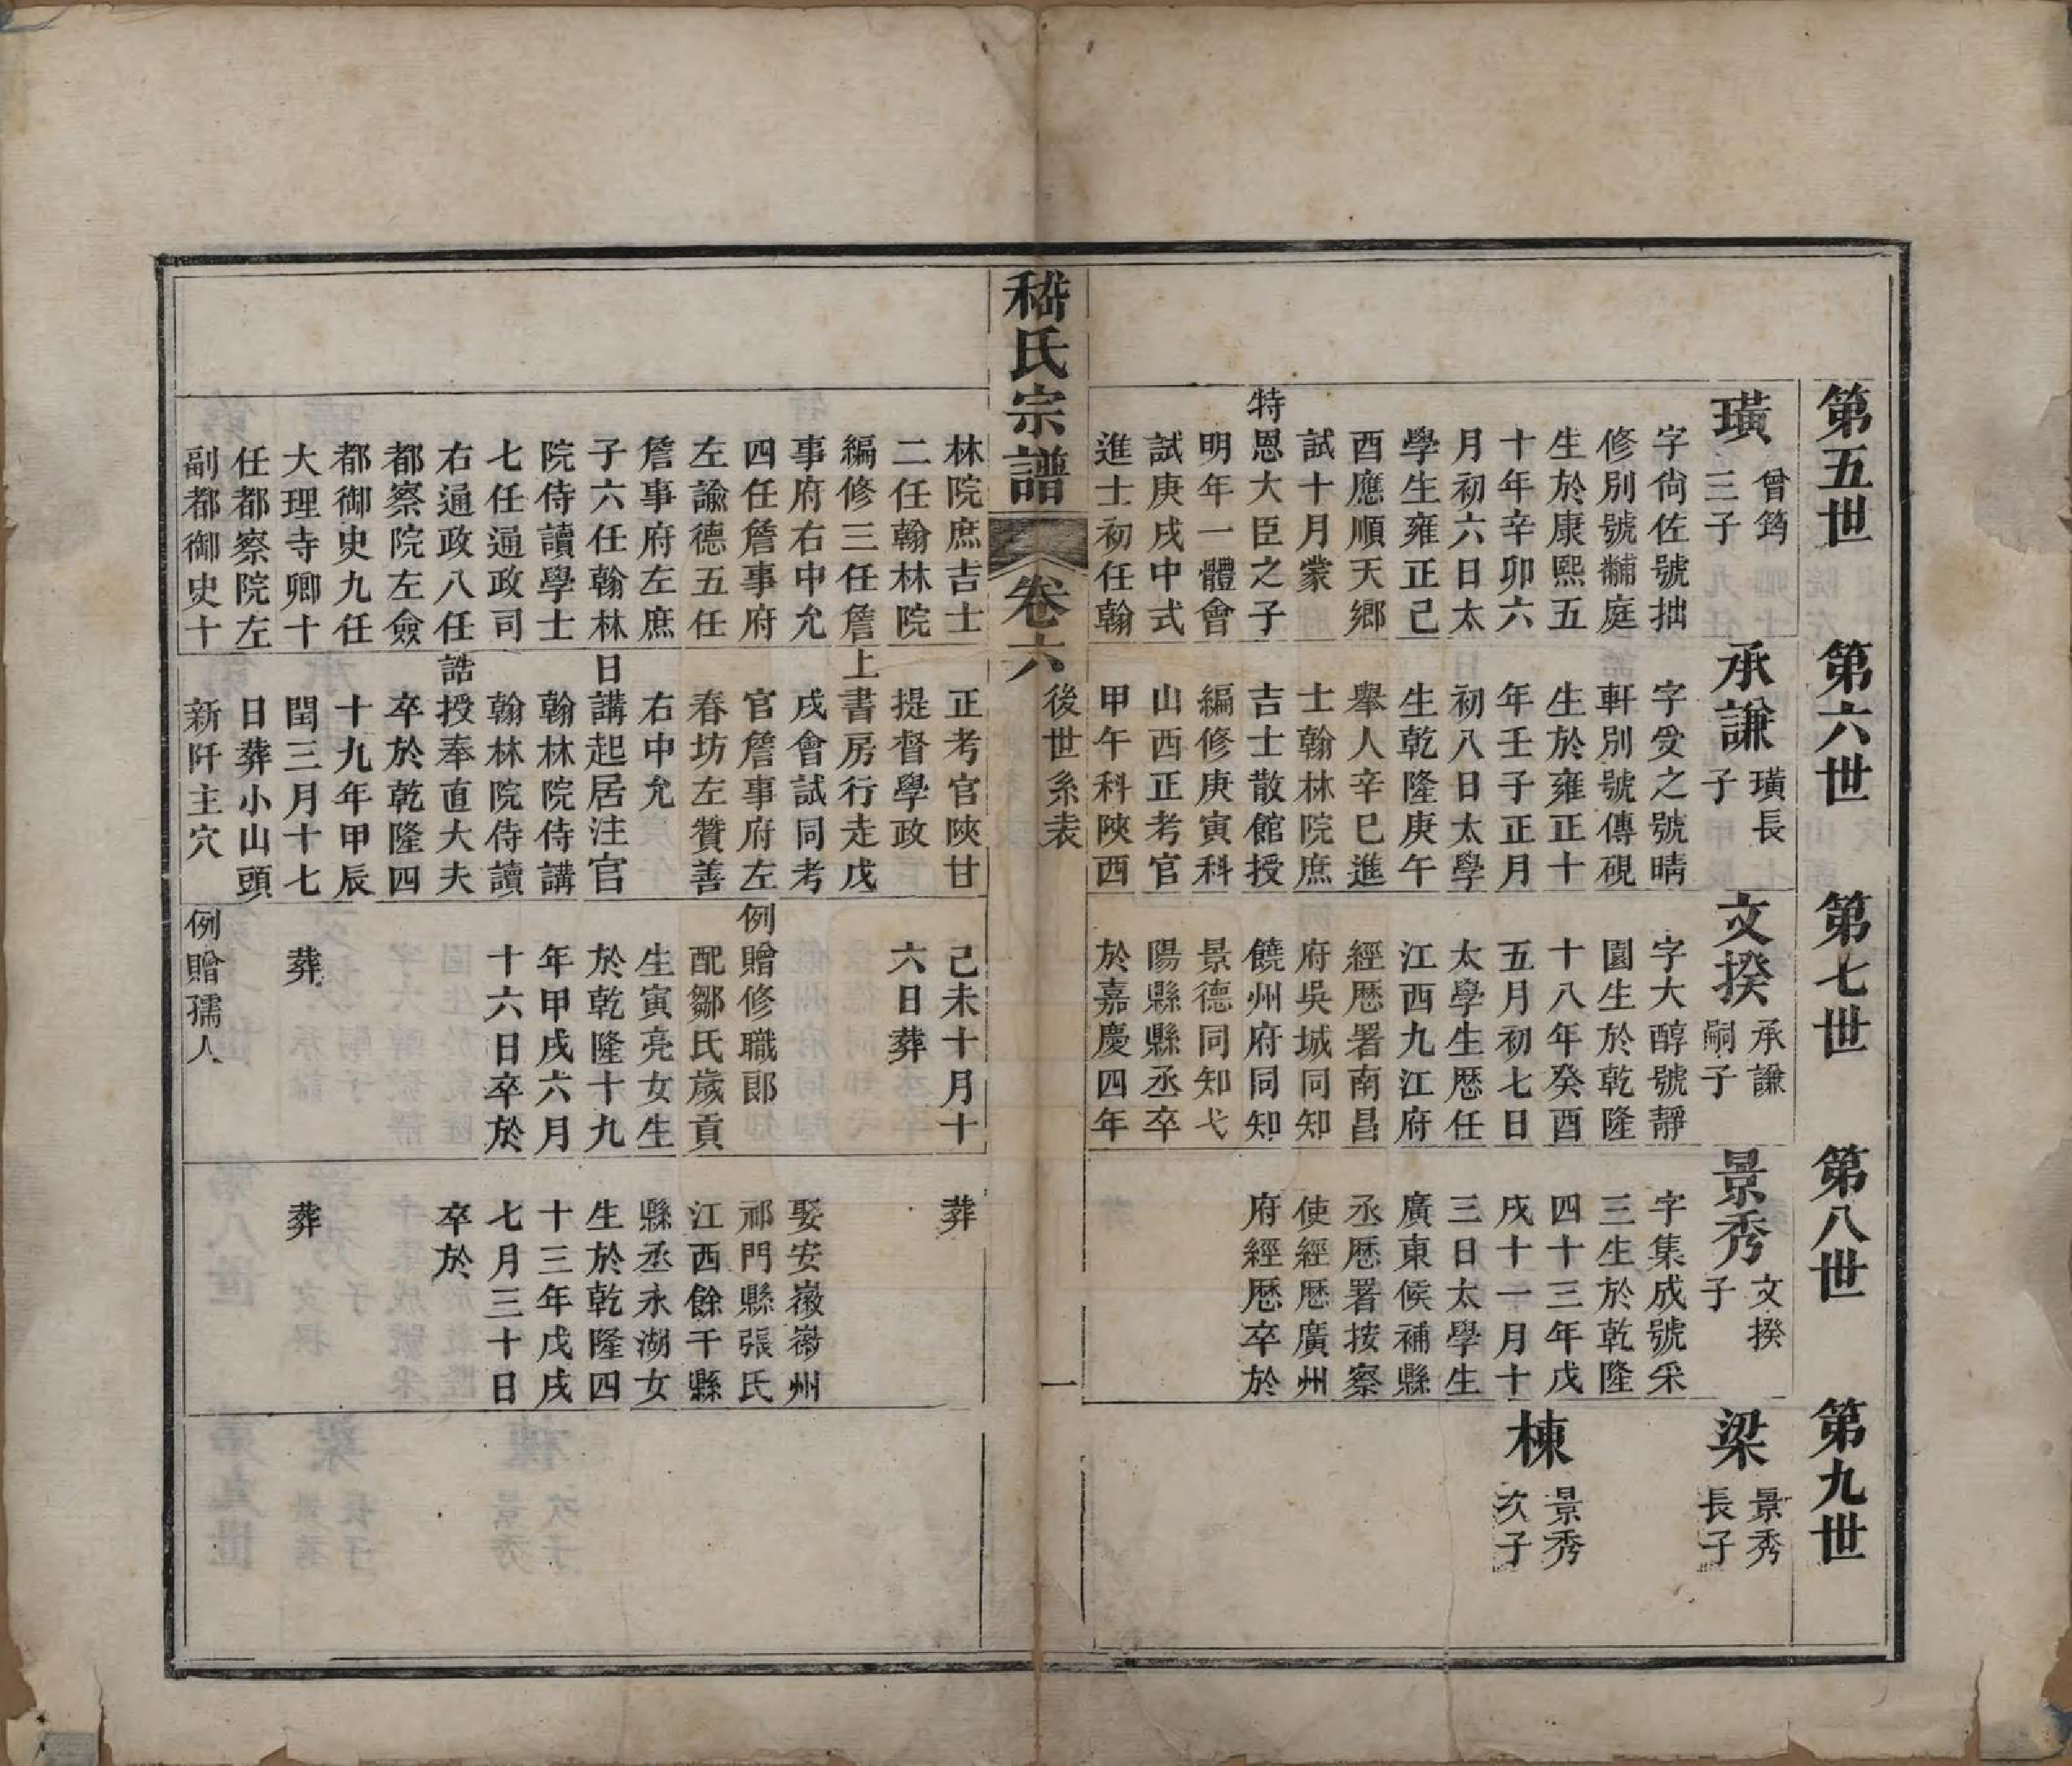 第五世
璜
曾筠
三子
字尙佐號拙
修別號黼庭
生於康熙五
十年辛卯六
月初六日太
學生雍正己
酉應順天鄉
試十月蒙
特恩大臣之子
明年一體會
試庚戌中式
進士初任翰
林院庶吉士
二任翰林院
編修三任詹
事府右中允
四任詹事府
左諭德五任
詹事府左庶
子六任翰林
院侍讀學士
七任通政司
右通政八任
都察院左僉
都御史九任
大理寺卿十
任都察院左
副都御史十
第六世
承謙
璜長
子
字受之號晴
軒別號傳硯
生於雍正十
年壬子正月
初八日太學
生乾隆庚午
舉人辛巳進
士翰林院庶
吉士散館授
編修庚寅科
山西正考官
甲午科陝西
正考官陝甘
提督學政
上書房行走戊
戌會試同考
官詹事府左
春坊左贊善
右中允
日講起居注官
翰林院侍講
翰林院侍讀
誥授奉直大夫
卒於乾隆四
十九年甲辰
閏三月十七
日葬小山頭
新阡主穴
第七世
文揆
承謙
嗣子
字大醇號靜
園生於乾隆
十八年癸酉
五月初七日
太學生歷任
江西九江府
經歷署南昌
府吳城同知
饒州府同知
景德同知弋
陽縣縣丞卒
於嘉慶四年
己未十月十
六日葬
例贈修職郎
配鄒氏歲貢
生寅亮女生
於乾隆十九
年甲戌六月
十六日卒於
葬
例贈孺人
第八世
景秀
文揆
子
字集成號采
三生於乾隆
四十三年戊
戌十一月十
三日太學生
廣東候補縣
丞歷署按察
使經歷廣州
府經歷卒於
葬
娶安徽徽州
祁門縣張氏
江西餘干縣
縣丞永湖女
生於乾隆四
十三年戊戌
七月三十日
卒於
葬
第九世
梁
景秀
長子
棟
景秀
次子
嵇氏宗譜
卷六
後世系表
一